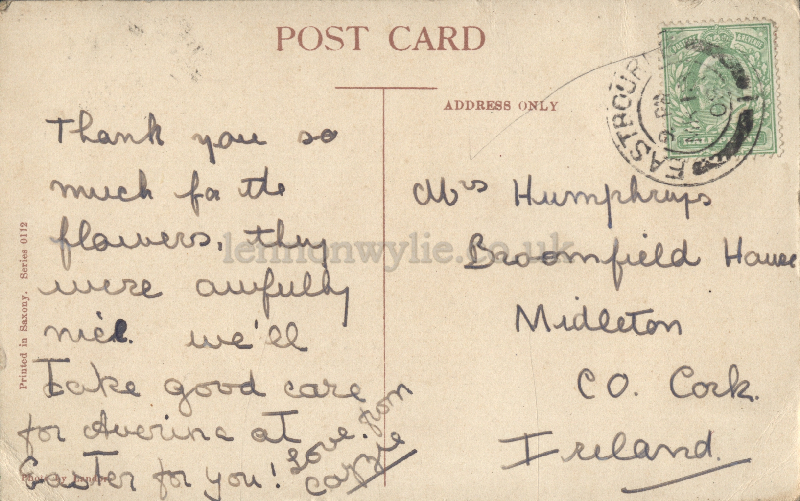 POST CARD
ADDRESS ONLY
EASTBOURNE
Thank you so
much for the
flowers, they
were awfully
nice. we'll
Take good care
for Averina at
Easter for you!
Love from
Carrie
Mrs Humphrys
Broomfield House
Midleton
CO. Cork.
Ireland.
Printed in Saxony. Series 0112
lennonwylie.co.uk